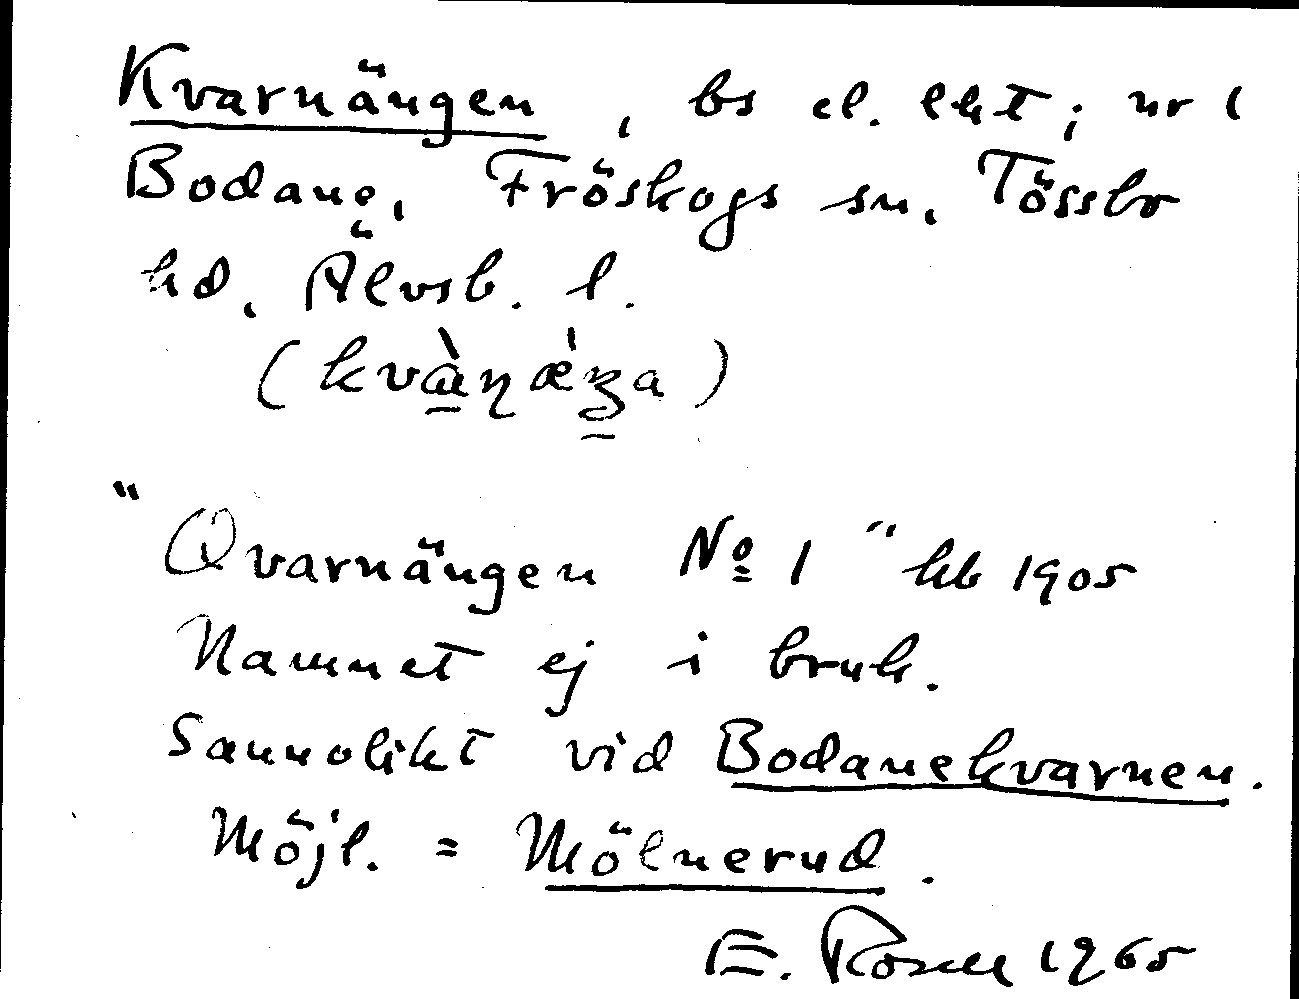 Kvarnängen, bs el. lht; nr 1
Bodane, Fröskogs sn, Tössbo
hd, Älvsb. l.
(kvàɳǽŋa)
"Qvarnängen № 1" kb 1905
Namnet ej i bruk.
Sannolikt vid Bodanekvarnen.
Möjl. = Mölnerud.
E. Rosell 1965